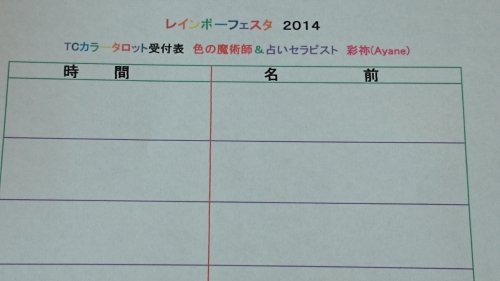 レインボーフェスタ 2014
TCカラータロット受付表 色の魔術師＆占いセラピスト 彩祢(Ayane)
時 間 名 前